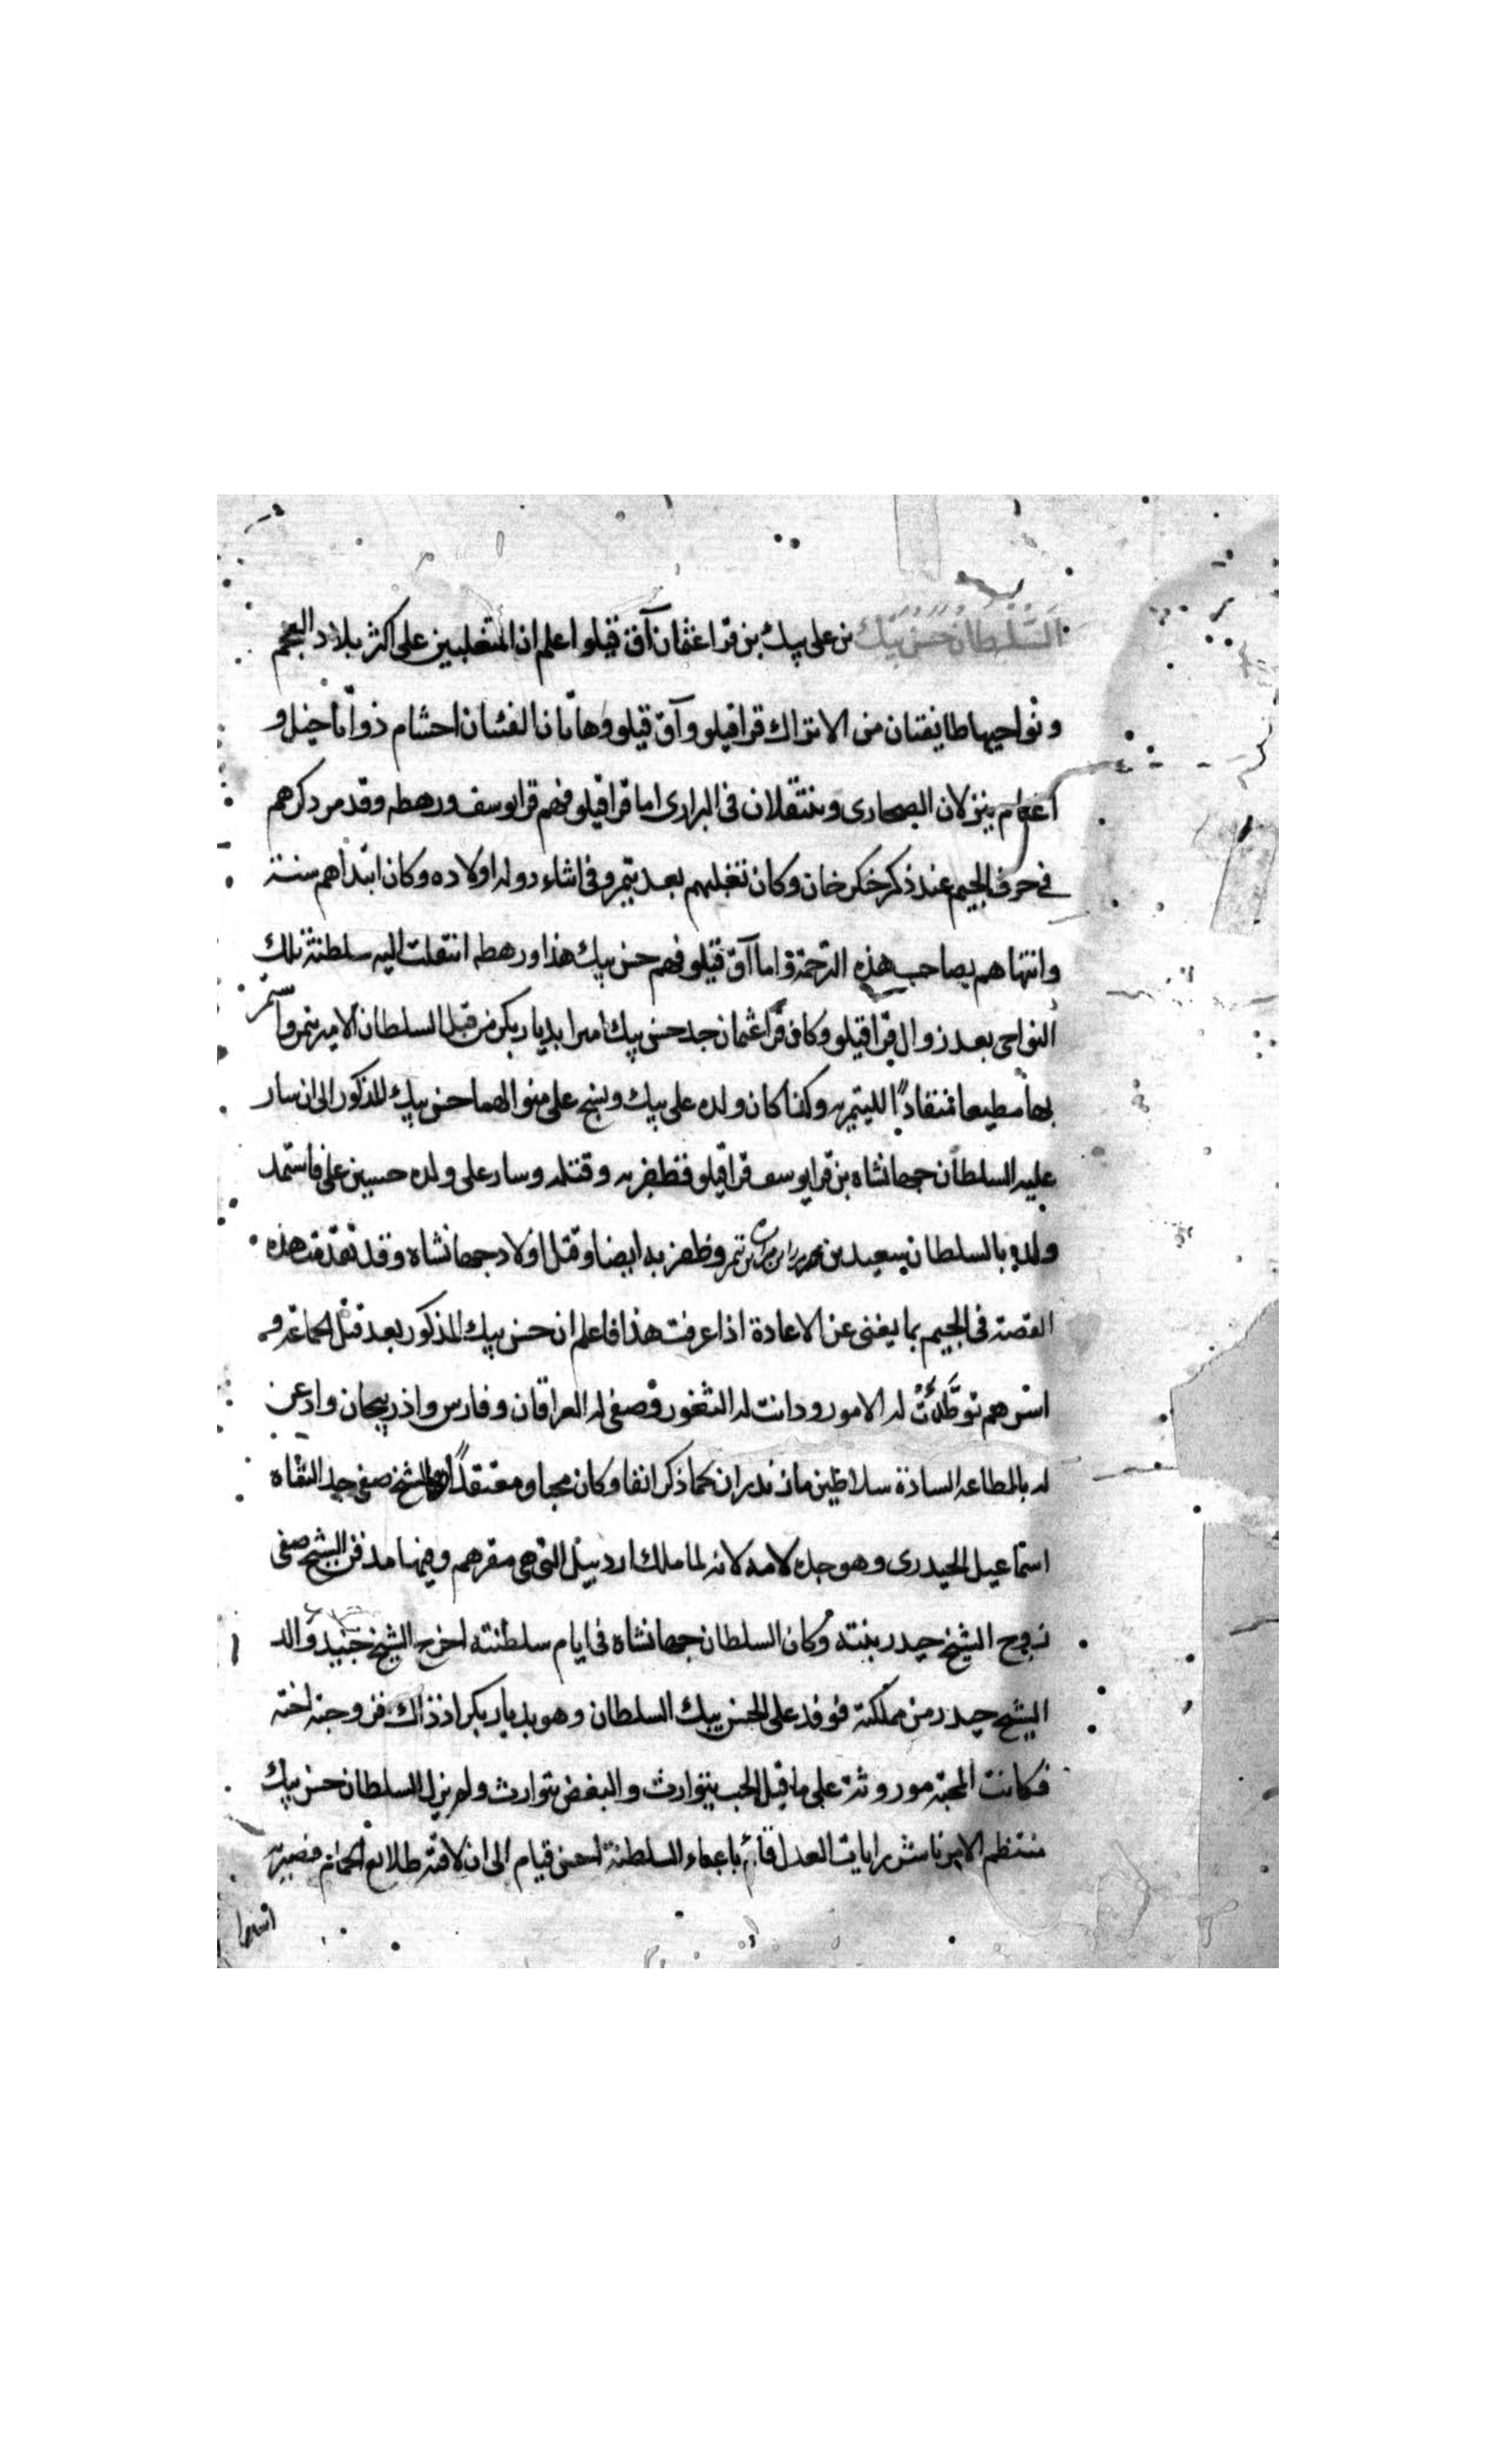 السلطان حسن بيك بن علي بيك بن قرا عثمان آق قيلو اعلم ان المتغلبين على اكثر بلاد العجم
ونواحيها طائفتان من الاتراك قراقيلو وآق قيلو وهاتان الفئتان احشام ذواتا خيل و
اغنام ينزلان الصحارى وينتقلان في البرارى اما قراقيلو فهم قرا يوسف ورهطه وقد مر ذكرهم
في حرف الجيم عند ذكر خنكر خان وكان تغلبهم بعد تيمر وفي اثناء دولة اولاده وكان ابتدأهم سنة
وانتهاهم بصاحب هذه الترجمة واما آق قيلو فهم حسن بيك هذا ورهطه انتقلت اليه سلطنة تلك
النواحى بعد زوال قراقيلو وكان قرا عثمان جد حسن بيك اميرا بديار بكر من قبل السلطان الامير تيمر واستمر
بها مطيعا منقادًا للتيمريه وكذا كان ولده على بيك ونسج على منوالهما حسن بيك المذكور الى ان سار
عليه السلطان جهانشاه بن قرا يوسف قراقيلو فظفر به وقتله وسار على ولده حسين على فاستمد
ولده بالسلطان بسعيد بن تيمر وظفر به ايضا وقتل اولاد جهانشاه وقد تقدمت هذه
القصة في الجيم بما يغنى عن الاعادة اذا عرفت هذا فاعلم ان حسن بيك المذكور بعد قتل الجماعة و
اسرهم توطدت له الامور ودانت له الثغور وصفى له العراقان وفارس واذربيجان واذعن
له بالطاعة السادة سلاطين مازندران كما ذكر انفا وكان محبا ومعتقدًا الشيخ صفى جد الشاه
اسماعيل الحيدرى وهو جده لامه لانه لما ملك اردبيل التى هى مقرهم وفيها مدفن الشيخ صفى
زوج الشيخ حيدر بنته وكان السلطان جهانشاه فى ايام سلطنته اخرج الشيخ جنيد والد
الشيخ حيدر من مملكته فوفد على الحسن بيك السلطان وهو بديار بكر اذ ذاك فزوجه اخته
فكانت المحبة موروثة على ما قيل الحب يتوارث والبغض يتوارث ولم يزل السلطان حسن بيك
منتظم الامر ناشر رايات العدل قائم باعباء السلطنة احسن قيام الى ان لاقته طلائع الحمام فصيرته